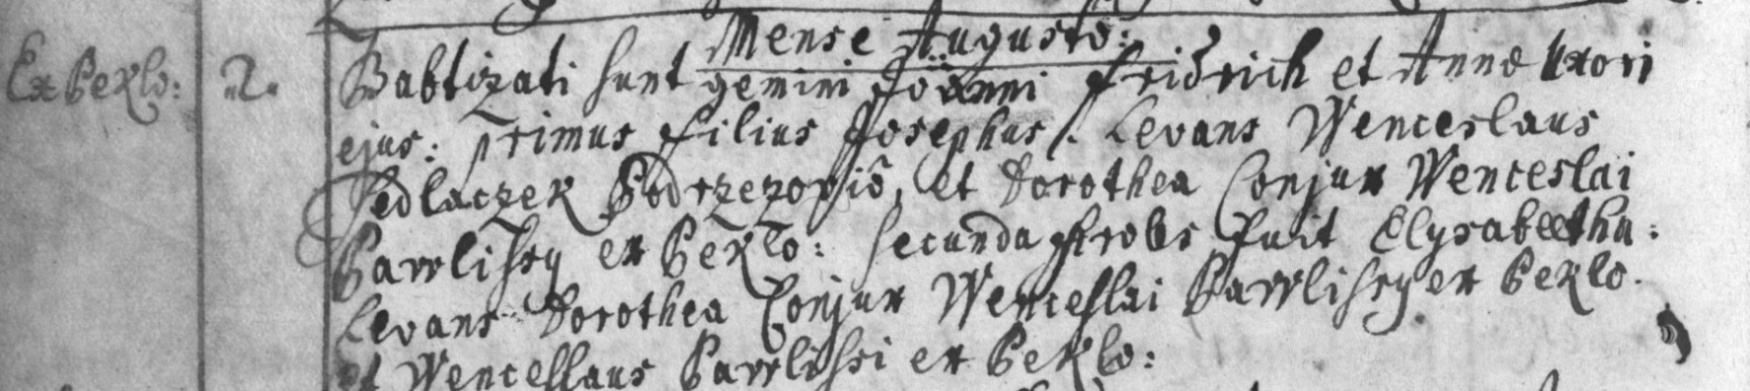 Mense Augusto:
Ex Peklo: 2. Babtizati sunt gemini Joanni Fridrich et Anna Uxori
ejus: primus filius Josephus /. Levans Wenceslaus
Sedlaczek et Dorothea Conjux Wenceslai
Pawlisky ex Peklo: secunda proles fuit Elysabeetha:
Levans Dorothea Conjux Wenceslai Pawlisky ex Peklo.
et Wenceslaus Pawliski ex Peklo: